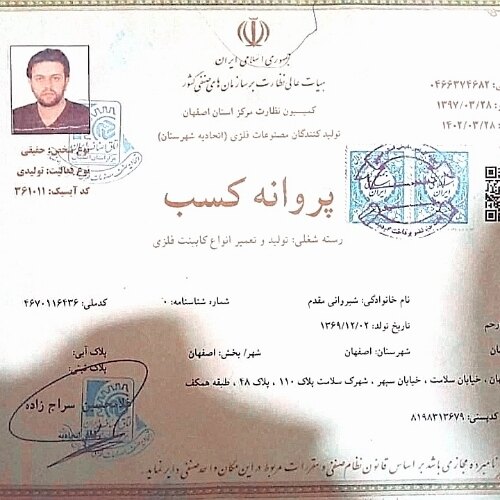 جمهوری اسلامی ایران
هیات عالی نظارت بر سازمان های صنفی کشور
کمیسیون نظارت مرکز استان اصفهان
تولید کنندگان مصنوعات فلزی (اتحادیه شهرستان)
۰۴۶۶۳۷۴۶۸۲
۱۳۹۷/۰۳/۲۸
۱۴۰۲/۰۳/۲۸
نوع شخص: حقیقی
نوع فعالیت: تولیدی
کد آیسیک: ۳۶۱۰۱۱
پروانه کسب
رسته شغلی: تولید و تعمیر انواع کابینت فلزی
نام خانوادگی: شیروانی مقدم
شماره شناسنامه: ۰
کدملی: ۴۶۷۰۱۱۶۴۳۶
تاریخ تولد: ۱۳۶۹/۱۲/۰۲
شهرستان: اصفهان
شهر/ بخش: اصفهان
پلاک آبی:
پلاک ثبتی:
خیابان سلامت ، خیابان سپهر ، شهرک سلامت پلاک ۱۱۰ ، پلاک ۴۸ ، طبقه همکف
کدپستی: ۸۱۹۸۳۱۳۶۷۹
غلامحسین سراج زاده
نامبرده مجاز می باشد بر اساس قانون نظام صنفی و مقررات مربوط در این مکان واحد صنفی دایر نماید.